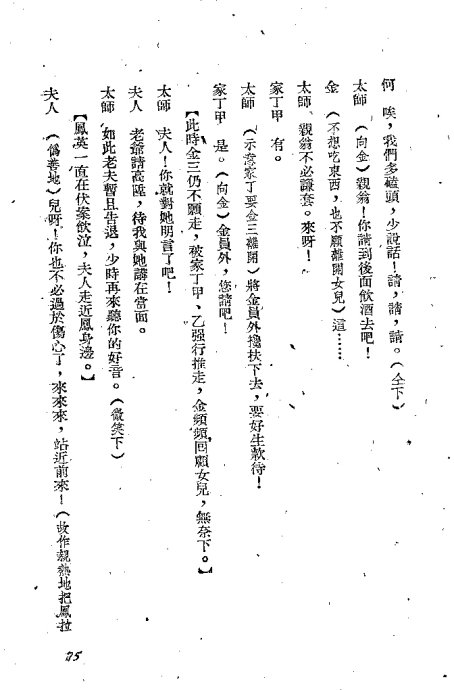 何　唉，我們多磕頭，少說話！請，請，請。（仝下）
太師　（向金）親翁！你請到後面飲酒去吧！
金　（不想吃東西，也不願離開女兒）這……
太師　親翁不必謙套。來呀！
家丁甲　有。
太師　（示意家丁要金三離開）將金員外攙扶下去，要好生款待！
家丁甲　是。（向金）金員外，您請吧！
【此時金三仍不願走，被家丁甲、乙强行推走，金頻頻回顧女兒，無奈下。】
太師　夫人！你就對她明言了吧！
夫人　老爺請高陞，待我與她講在當面。
太師　如此老夫暫且告退，少時再來聽你的好音。（微笑下）
【鳳英一直在伏案飲泣，夫人走近鳳身邊。】
夫人　（僞善地）兒呀！你也不必過於傷心了，來來來，站近前來！（故作親熱地把鳳拉
75